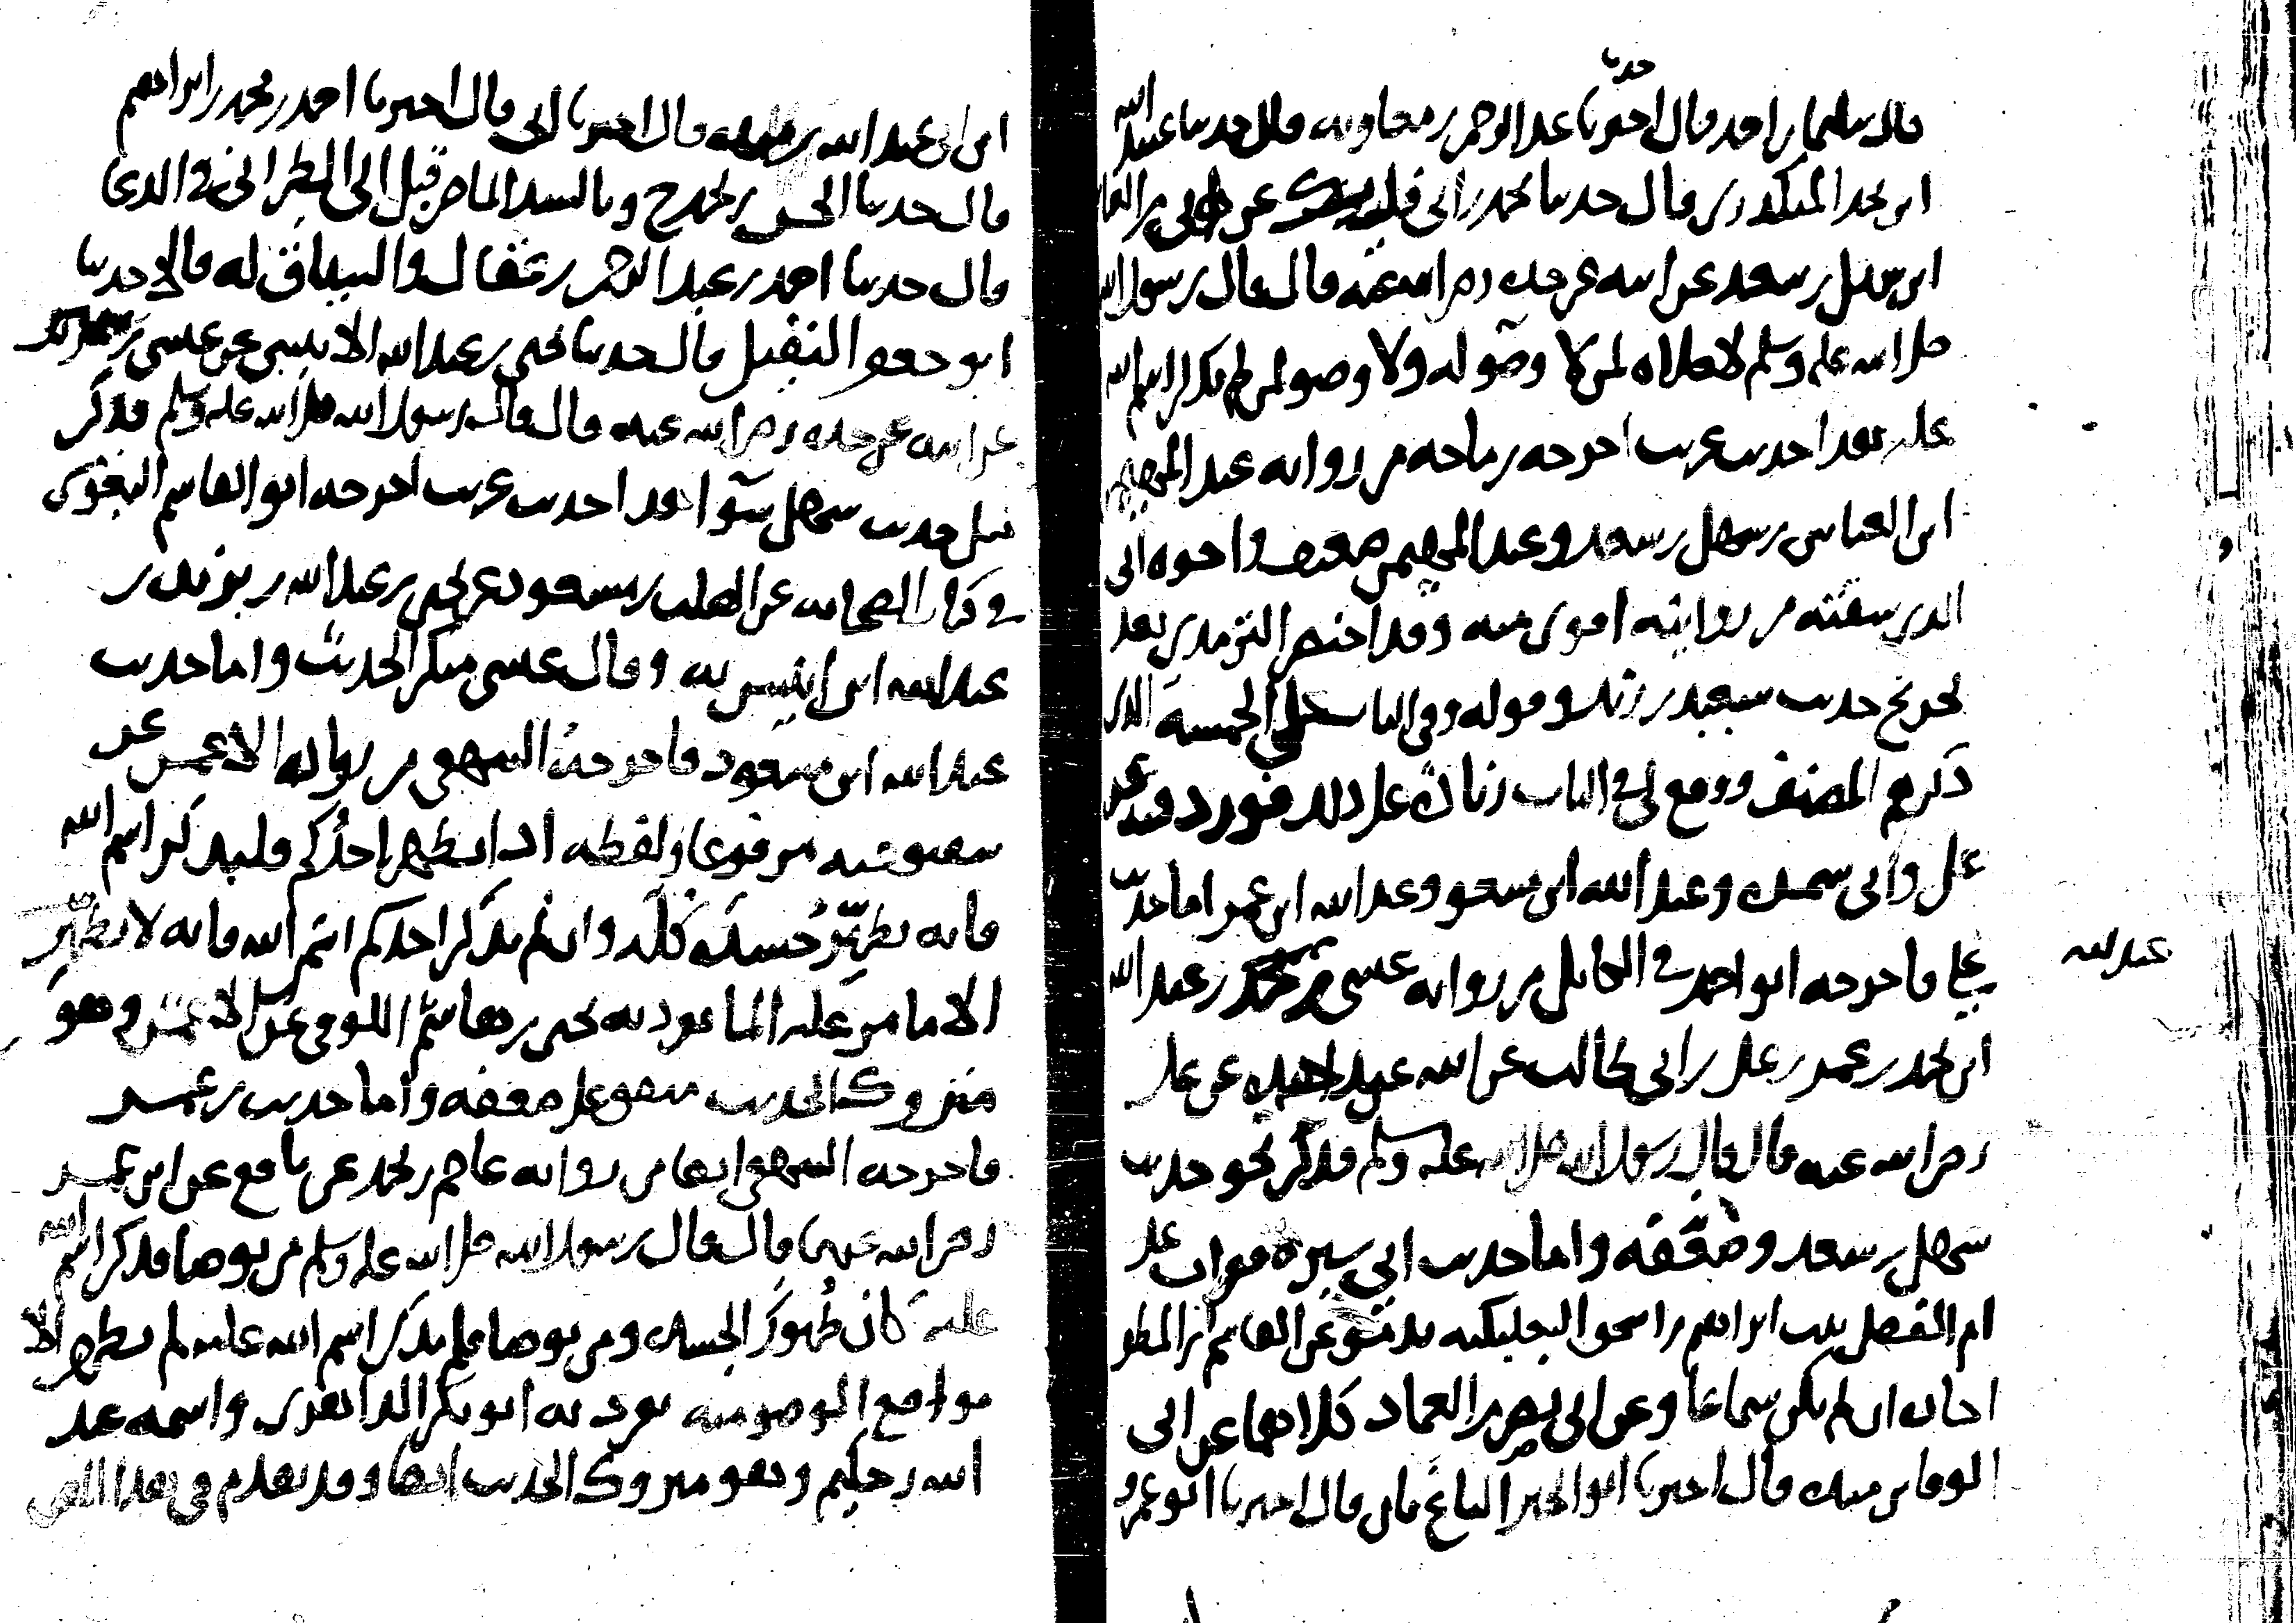 حدثنا
قال سليمان بن احمد قال اخبرنا عبد الرحمن بن معاويه قال حدثنا عبيد الله
ابن محمد المنكدري قال حدثنا محمد بن ابي فديك عن ابي بن العباس
ابن سهل بن سعد عن ابيه عن جده رضي الله عنه قال قال رسول الله
صلى الله عليه وسلم لا صلاة لمن لا وضو له ولا وضو لمن لم يذكر اسم الله
عليه هذا حديث غريب اخرجه بن ماجه من روايه عبد المهيمن
ابن العباس بن سهل بن سعد وعبد المهيمن ضعيف واخوه ابي
الذي سقته من روايته اقوى منه وقد اختصر الترمذي بعد
تخريج حديث سعيد بن زيد وقوله وفي الباب على الخمسة الذين
ذكرهم المصنف ووقع لي في الباب زيادة على ذلك فورد فيه عن
علي وابي سبره وعبد الله ابن مسعود وعبد الله ابن عمر اما حديث
علي فاخرجه ابو احمد في الكامل من روايه عيسى بن عبد الله
عبد الله
ابن محمد بن عمر بن علي بن ابي طالب عن ابيه عن جده عن علي
رضي الله عنه قال قال رسول الله صلى الله عليه وسلم فذكر نحو حديث
سهل بن سعد وضعفه واما حديث ابي سبرة فقرات على
ام الفضل بنت ابراهيم بن اسحق البعلبكيه بدمشق عن القاسم ابن المظفر
اجازه ان لم يكن سماعا وعن ابي نصر بن العماد كلاهما عن ابي
الوفا بن منده قال اخبرنا ابو الخير الباغبان قال اخبرنا ابو عمرو
ابن ابي عبد الله بن منده قال اخبرنا ابي قال اخبرنا احمد بن محمد بن ابراهيم
قال حدثنا الحسن بن محمد ح وبالسند الماضي قبل الى الطبراني في الدعا
قال حدثنا احمد بن عبد الرحمن بن عقال والسياق له قالا حدثنا
ابو جعفر النفيلي قال حدثنا يحيى بن عبد الله الانيسي عن عيسى بن سبره
عن ابيه عن جده رضي الله عنه قال قال رسول الله صلى الله عليه وسلم فذكر
مثل حديث سهل سوا هذا حديث غريب اخرجه ابو القاسم البغوي
في كتاب الصحابه عن الصلت بن مسعود عن يحيى بن عبد الله بن يزيد بن
عبد الله ابن انيس به وقال عيسى منكر الحديث واما حديث
عبد الله ابن مسعود فاخرجه البيهقي من روايه الاعمش عن
شقيق عنه مرفوعا ولفظه اذا تطهر احدكم فليذكر اسم الله
فانه يطهر جسده كله وان لم يذكر احدكم اسم الله فانه لا يطهر
الا ما مر عليه الما تفرد به يحيى بن هاشم الكوفي عن الاعمش وهو
متروك الحديث متفق على ضعفه واما حديث بن عمر
فاخرجه البيهقي ايضا من روايه عاصم بن محمد عن نافع عن ابن عمر
رضي الله عنهما قال قال رسول الله صلى الله عليه وسلم من توضا فذكر اسم الله
عليه كان طهورا لجسده ومن توضا فلم يذكر اسم الله عليه لم يطهر الا
مواضع الوضو منه تفرد به ابو بكر الداهري واسمه عبد
الله بن حكيم وهو متروك الحديث ايضا وقد تقدم في هذا